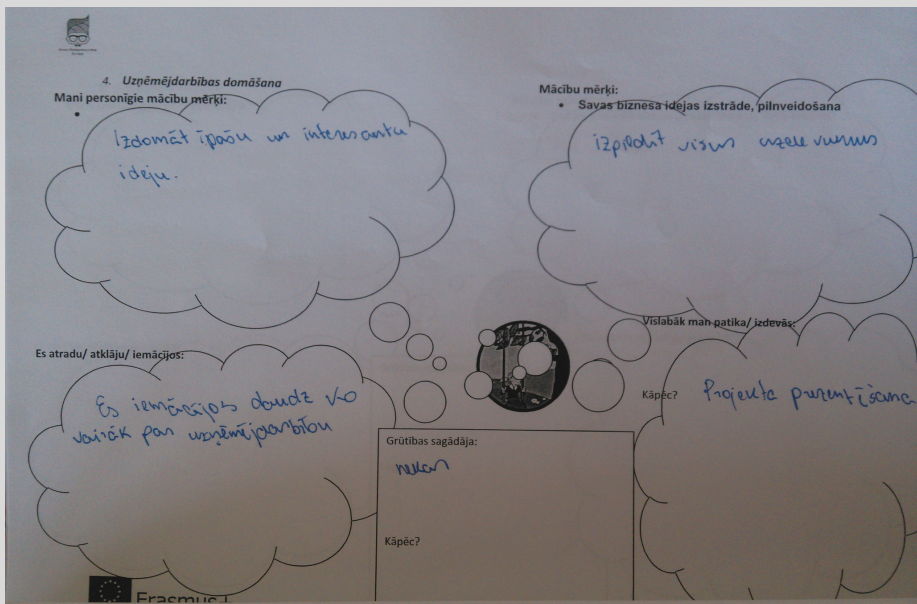 4. Uzņēmējdarbības domāšana
Mani personīgie mācību mērķi:
Izdomāt īpašu un interesantu
ideju.
Mācību mērķi:
• Savas biznesa idejas izstrāde, pilnveidošana
izpildīt visus uzdevumus
Es atradu/ atklāju/ iemācījos:
Es iemācījos daudz ko
vairāk par uzņēmējdarbību
Grūtības sagādāja:
nekas
Kāpēc?
Vislabāk man patika/ izdevās:
Kāpēc? Projekta prezentēšana
Erasmus+